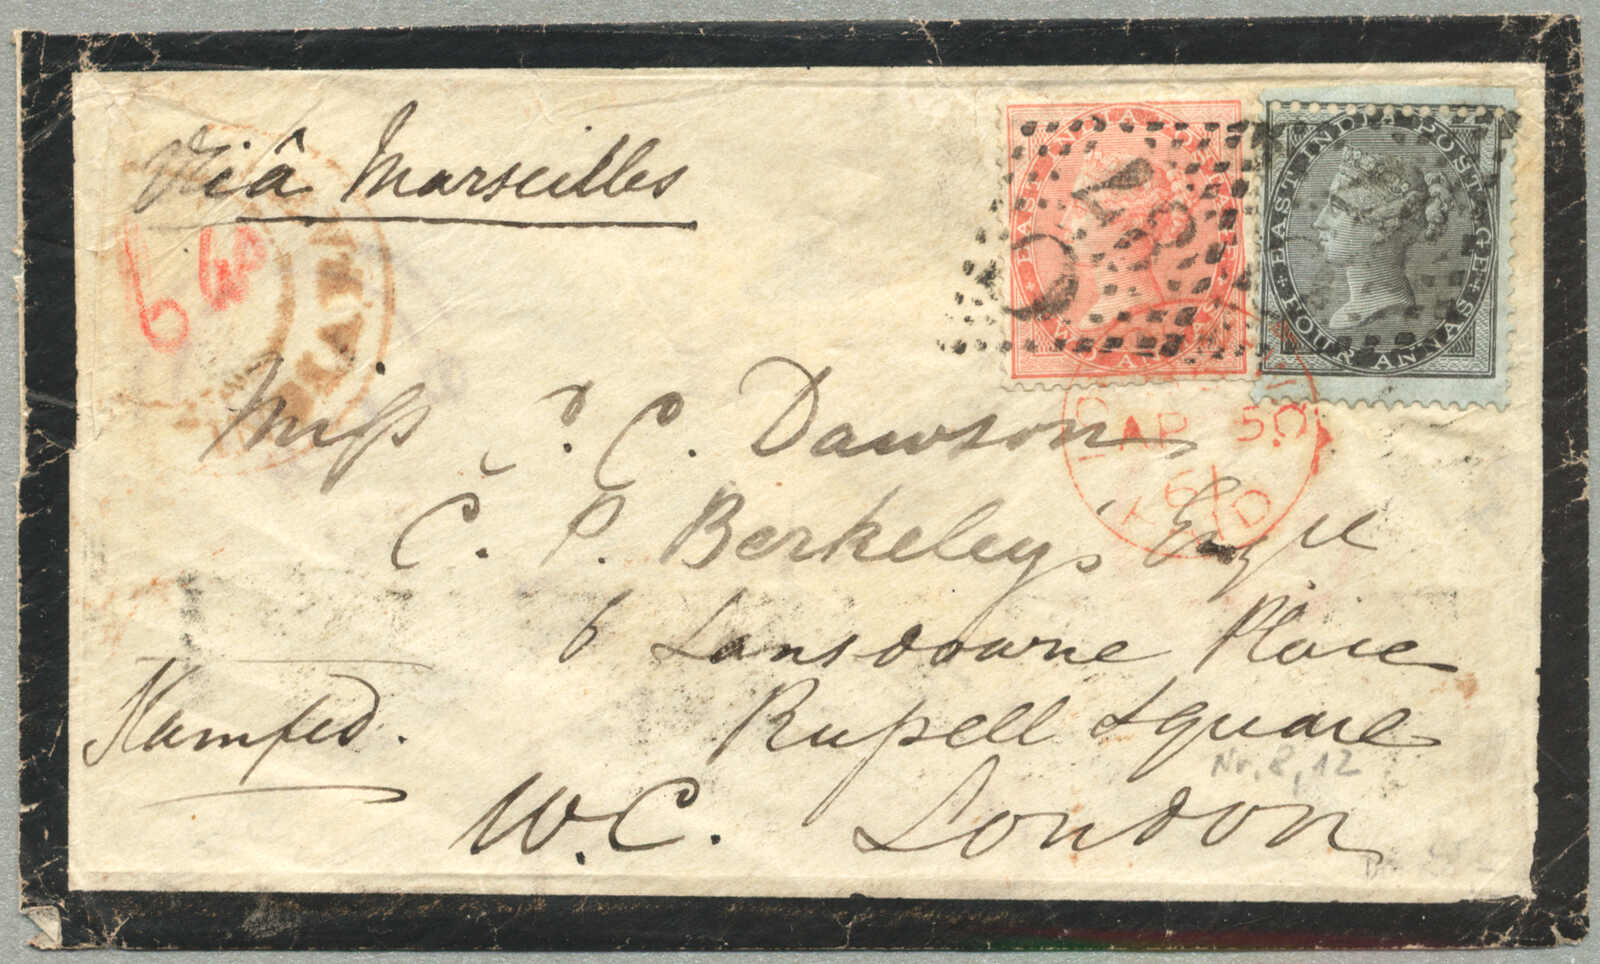 Viâ Marseilles
EAST INDIA POSTAGE
FOUR ANNAS
EAST INDIA POSTAGE
ANNAS
6
Miss C. C. Dawson
C. P. Berkeley's Esqre
PAID
AP 61
6 Lansdowne Place
Stamped.
Russell Square
Nr. 8, 12
W.C. London